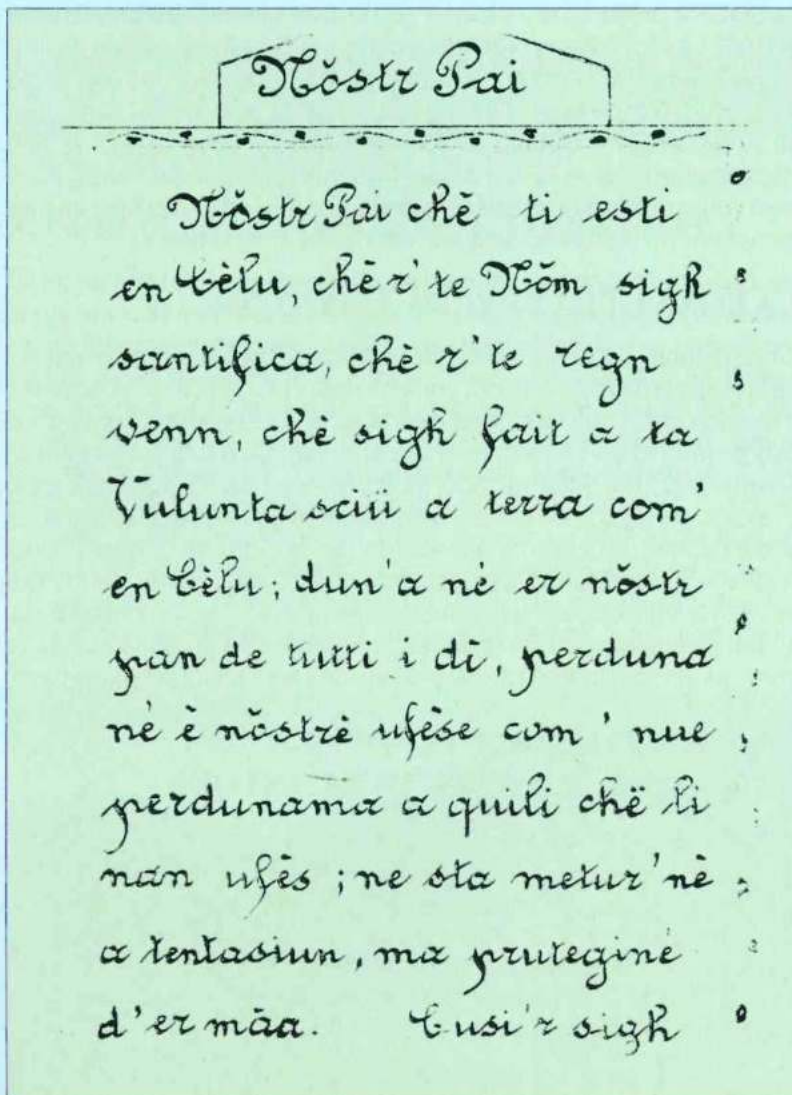 Nŏstr Pai
Nŏstr Pai chĕ ti esti
en Cèlu, chĕ r' te Nŏm sigh
santifica, chè r' te regn
venn, chè sigh fait a ta
Vulunta sciü a terra com'
en Cèlu; dun'a nè er nŏstr
pan de tutti i dĩ, perduna
nè è nŏstrè ufèse com' nue
perdunama a quili chë li
nan ufès; ne sta metur'nè
a tentasiun, ma pruteginè
d'er mãa. Cusi'r sigh